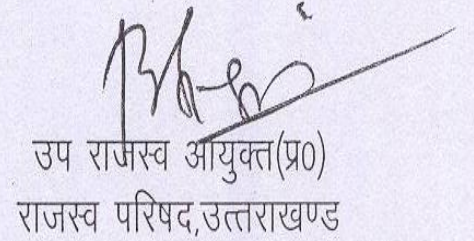 उप राजस्व आयुक्त(प्र0)
राजस्व परिषद,उत्तराखण्ड